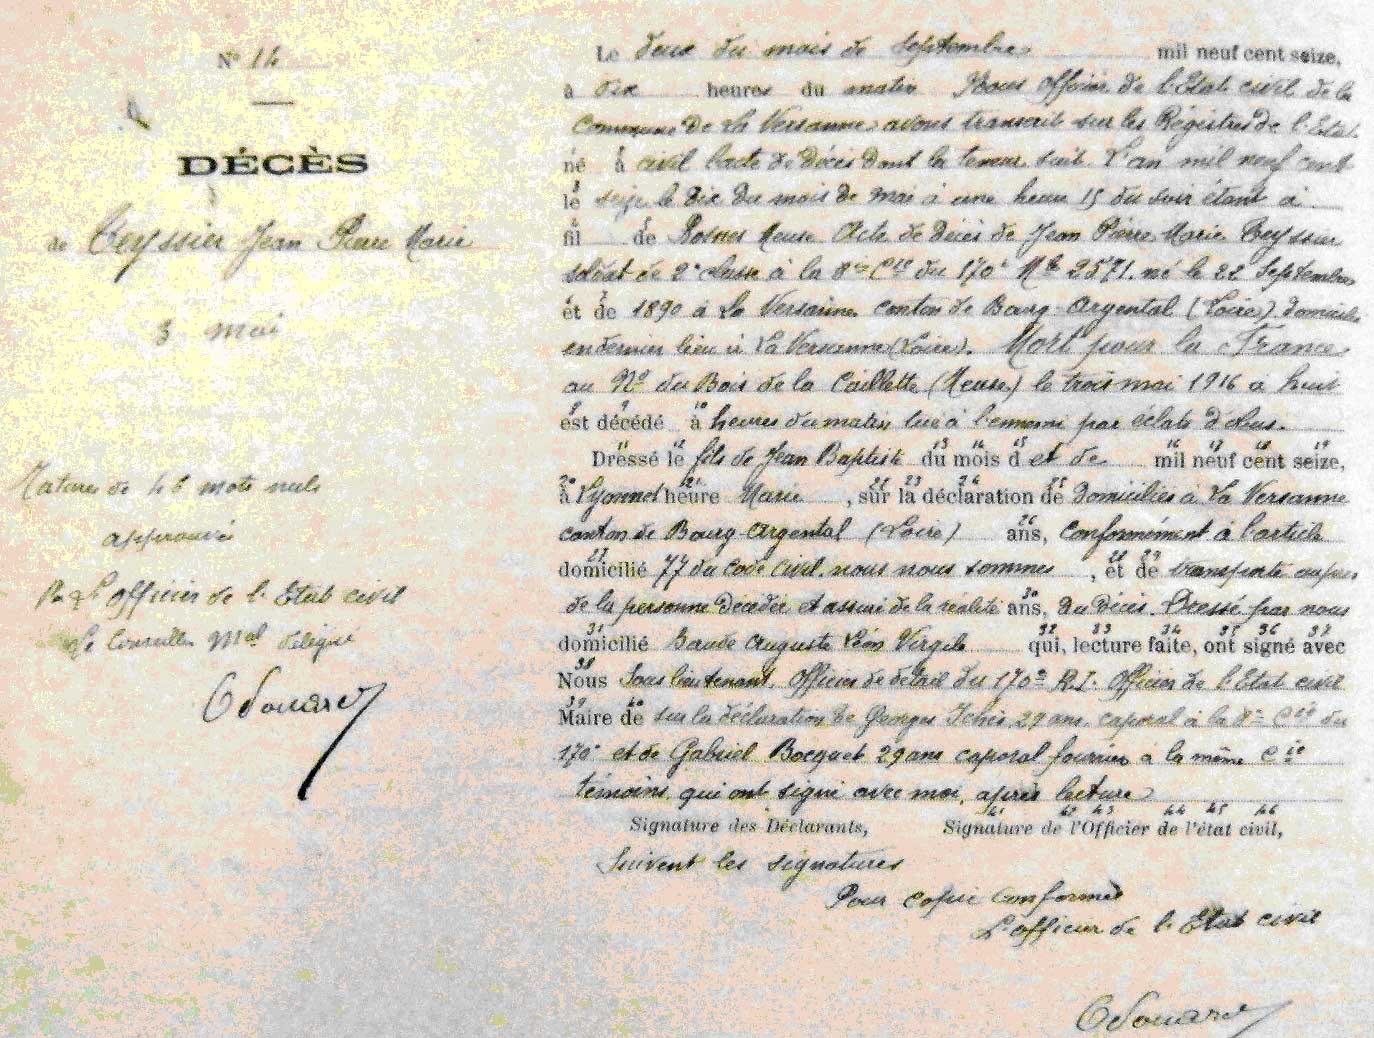 N° 14
DÉCÈS
de Teyssier Jean Pierre Marie
3 mai
Ratures de 46 mots nuls
approuvé
Pr L'officier de l'Etat civil
Le Conseiller Mal délégué
Odouard
Le deux du mois de Septembre mil neuf cent seize,
à dix heures du matin Nous Officier de l'Etat civil de la
Commune de La Versanne avons transcrit sur les Régistres de l'Etat
né à civil l'acte de décès dont la teneur suit. L'an mil neuf cent
le seize le dix du mois de mai à une heure 15 du soir étant à
fil de Bosnes Meuse Acte de décès de Jean Pierre Marie Teyssier
soldat de 2e classe à la 8e Cie du 170e Mle 2571. né le 22 Septembre
et de 1890 à La Versanne canton de Bourg-Argental (Loire), domicilié
en dernier lieu à La Versanne (Loire). Mort pour la France
au Nd du Bois de la Caillette (Meuse) le trois mai 1916 à huit
est décédé à heures du matin tué à l'ennemi par éclats d'obus.
Dressé le fils de Jean Baptiste du mois d et de mil neuf cent seize,
à Lyonnet heure Marie , sur la déclaration de domiciliés à La Versanne
canton de Bourg-Argental (Loire) ans, conformément à l'article
domicilié 77 du Code Civil. nous nous sommes , et de transporté auprès
de la personne décédée et assuré de la réalité ans, du décès. Dressé par nous
domicilié Baude Auguste Léon Virgile qui, lecture faite, ont signé avec
Nous Sous lieutenant. Officier de détail du 170e R.I. Officier de l'Etat civil
Maire de sur la déclaration de Georges 29 ans, caporal à la 8e Cie du
170e et de Gabriel Bocquet 29 ans caporal fourrier à la même Cie
témoins, qui ont signé avec moi, après lecture
Signature des Déclarants, Signature de l'Officier de l'état civil,
Suivent les signatures
Pour copie conforme
L'officier de l'Etat civil
Odouard